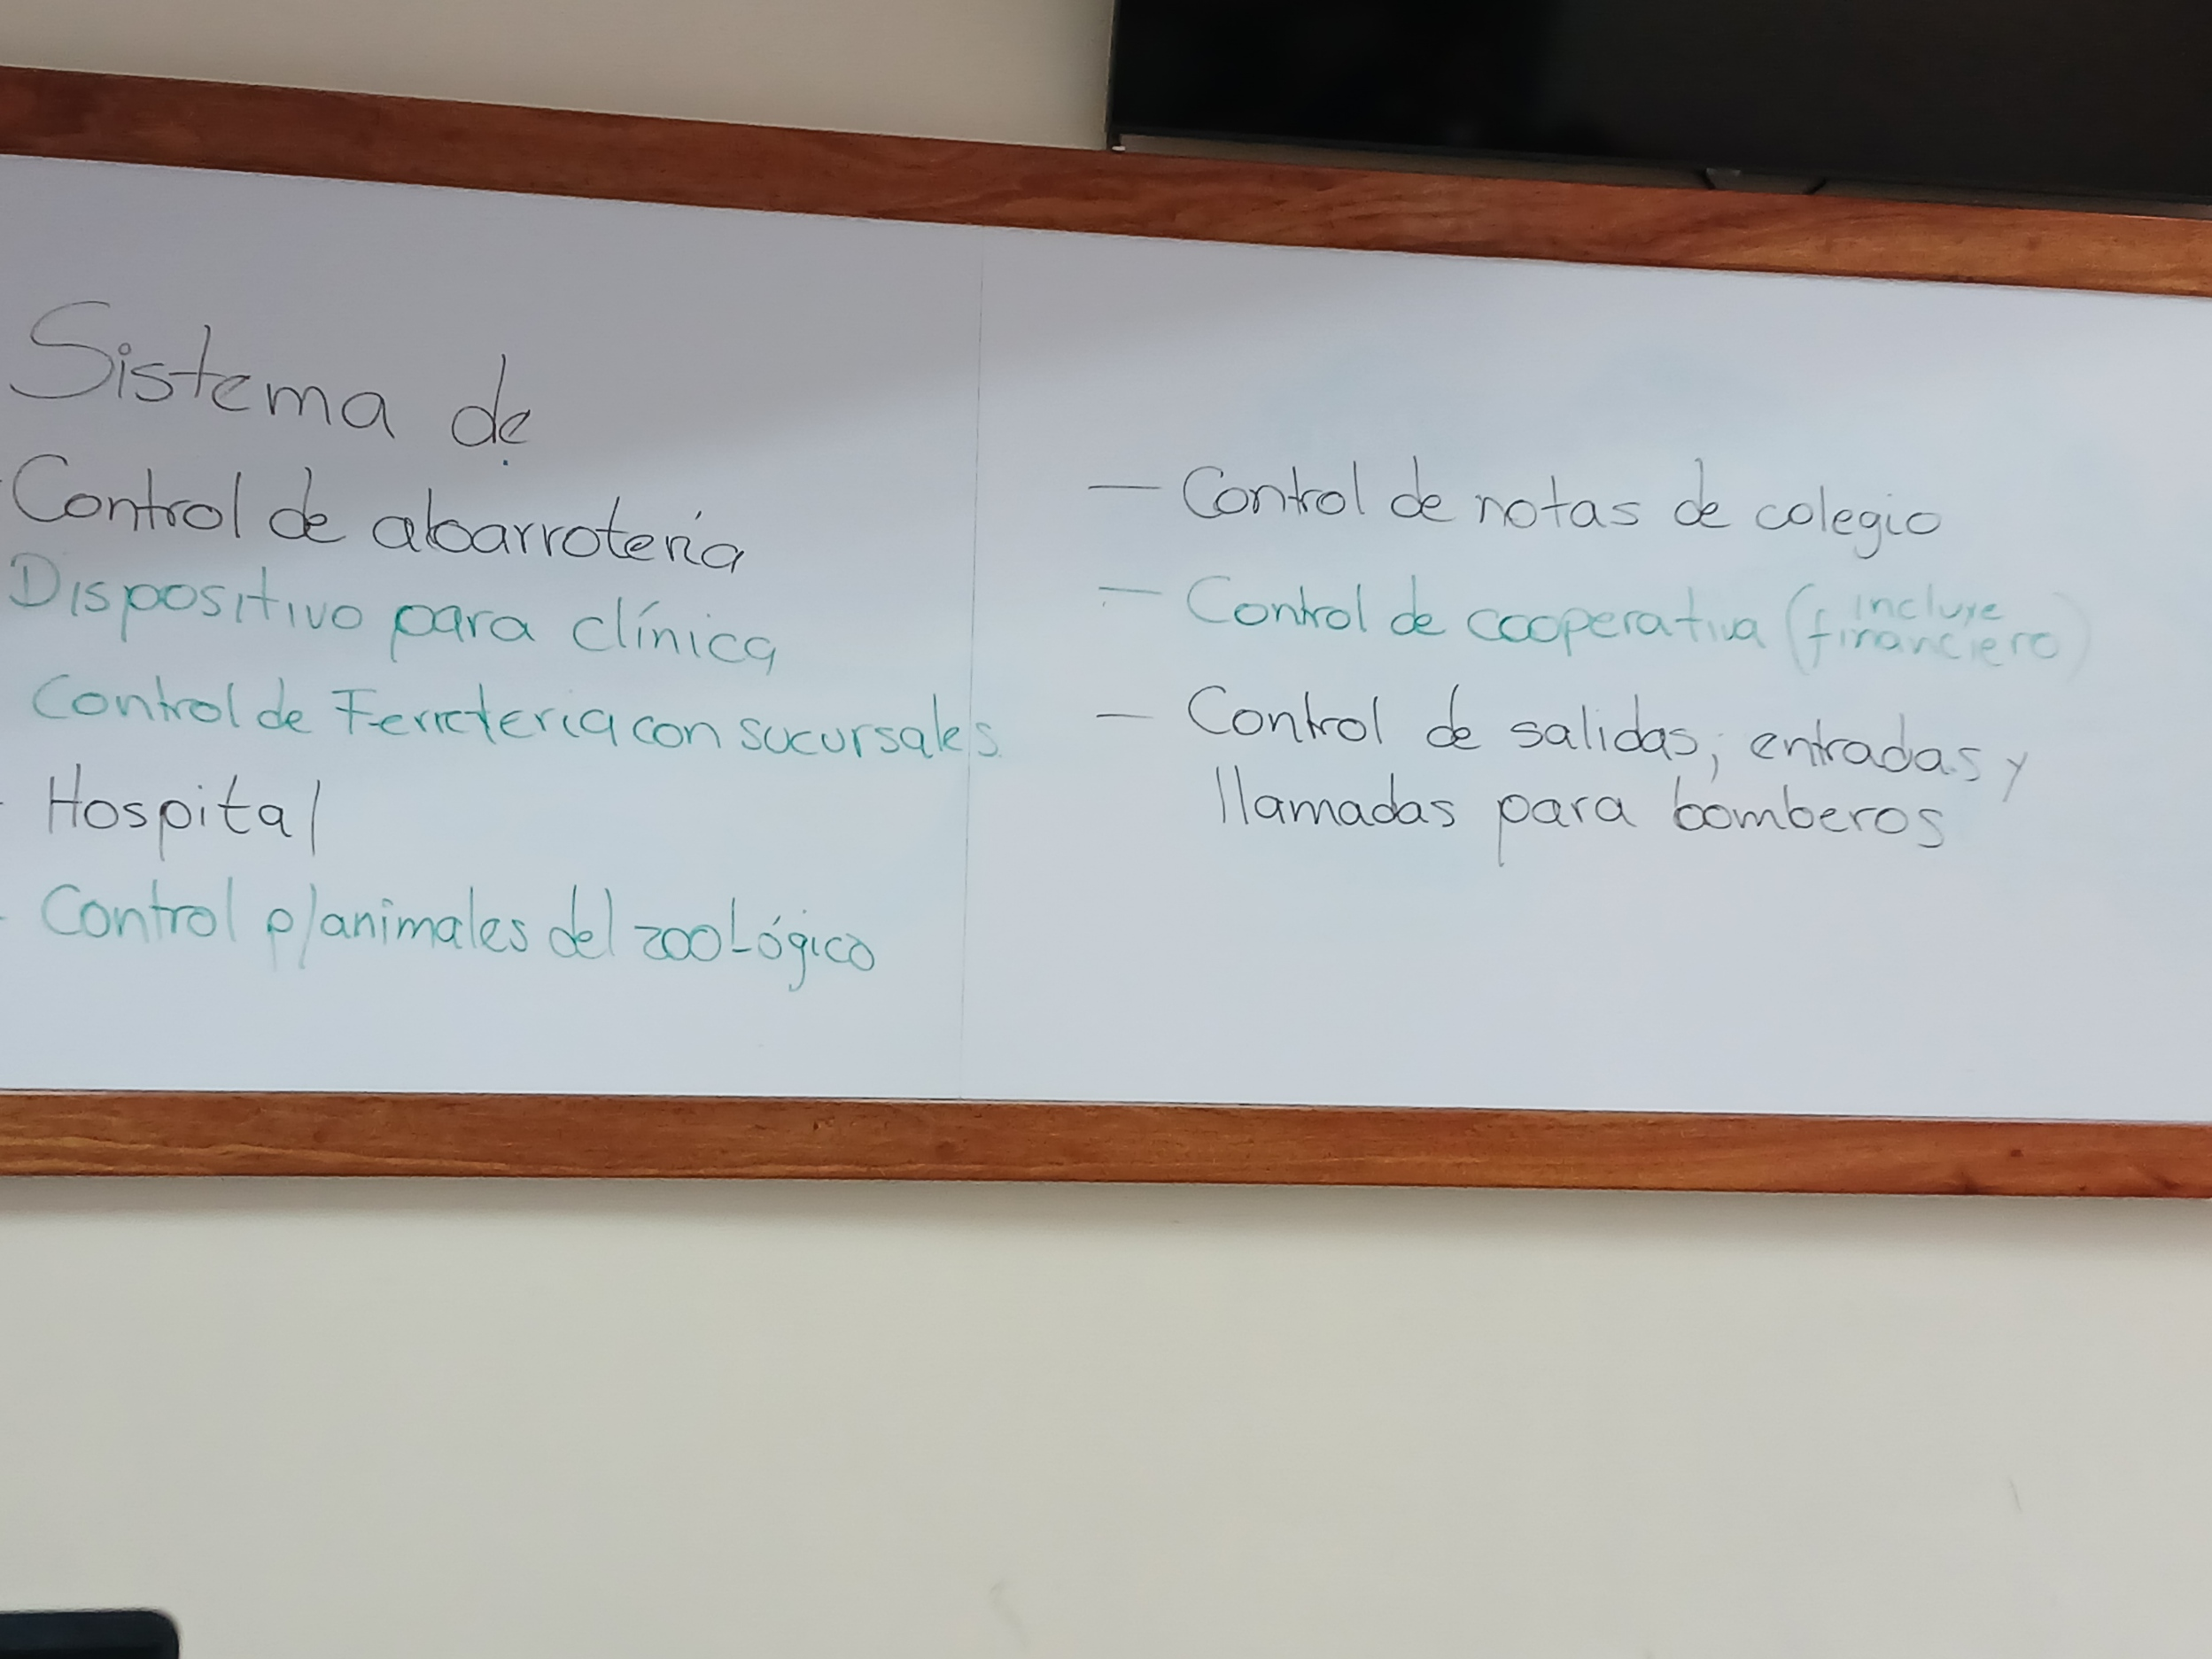 Sistema de
Control de abarrotería
Dispositivo para clínica
Control de Ferretería con sucursales
- Hospital
- Control p/animales del zooLógico
— Control de notas de colegio
— Control de cooperativa (incluye
financiero)
— Control de salidas, entradas y
llamadas para bomberos